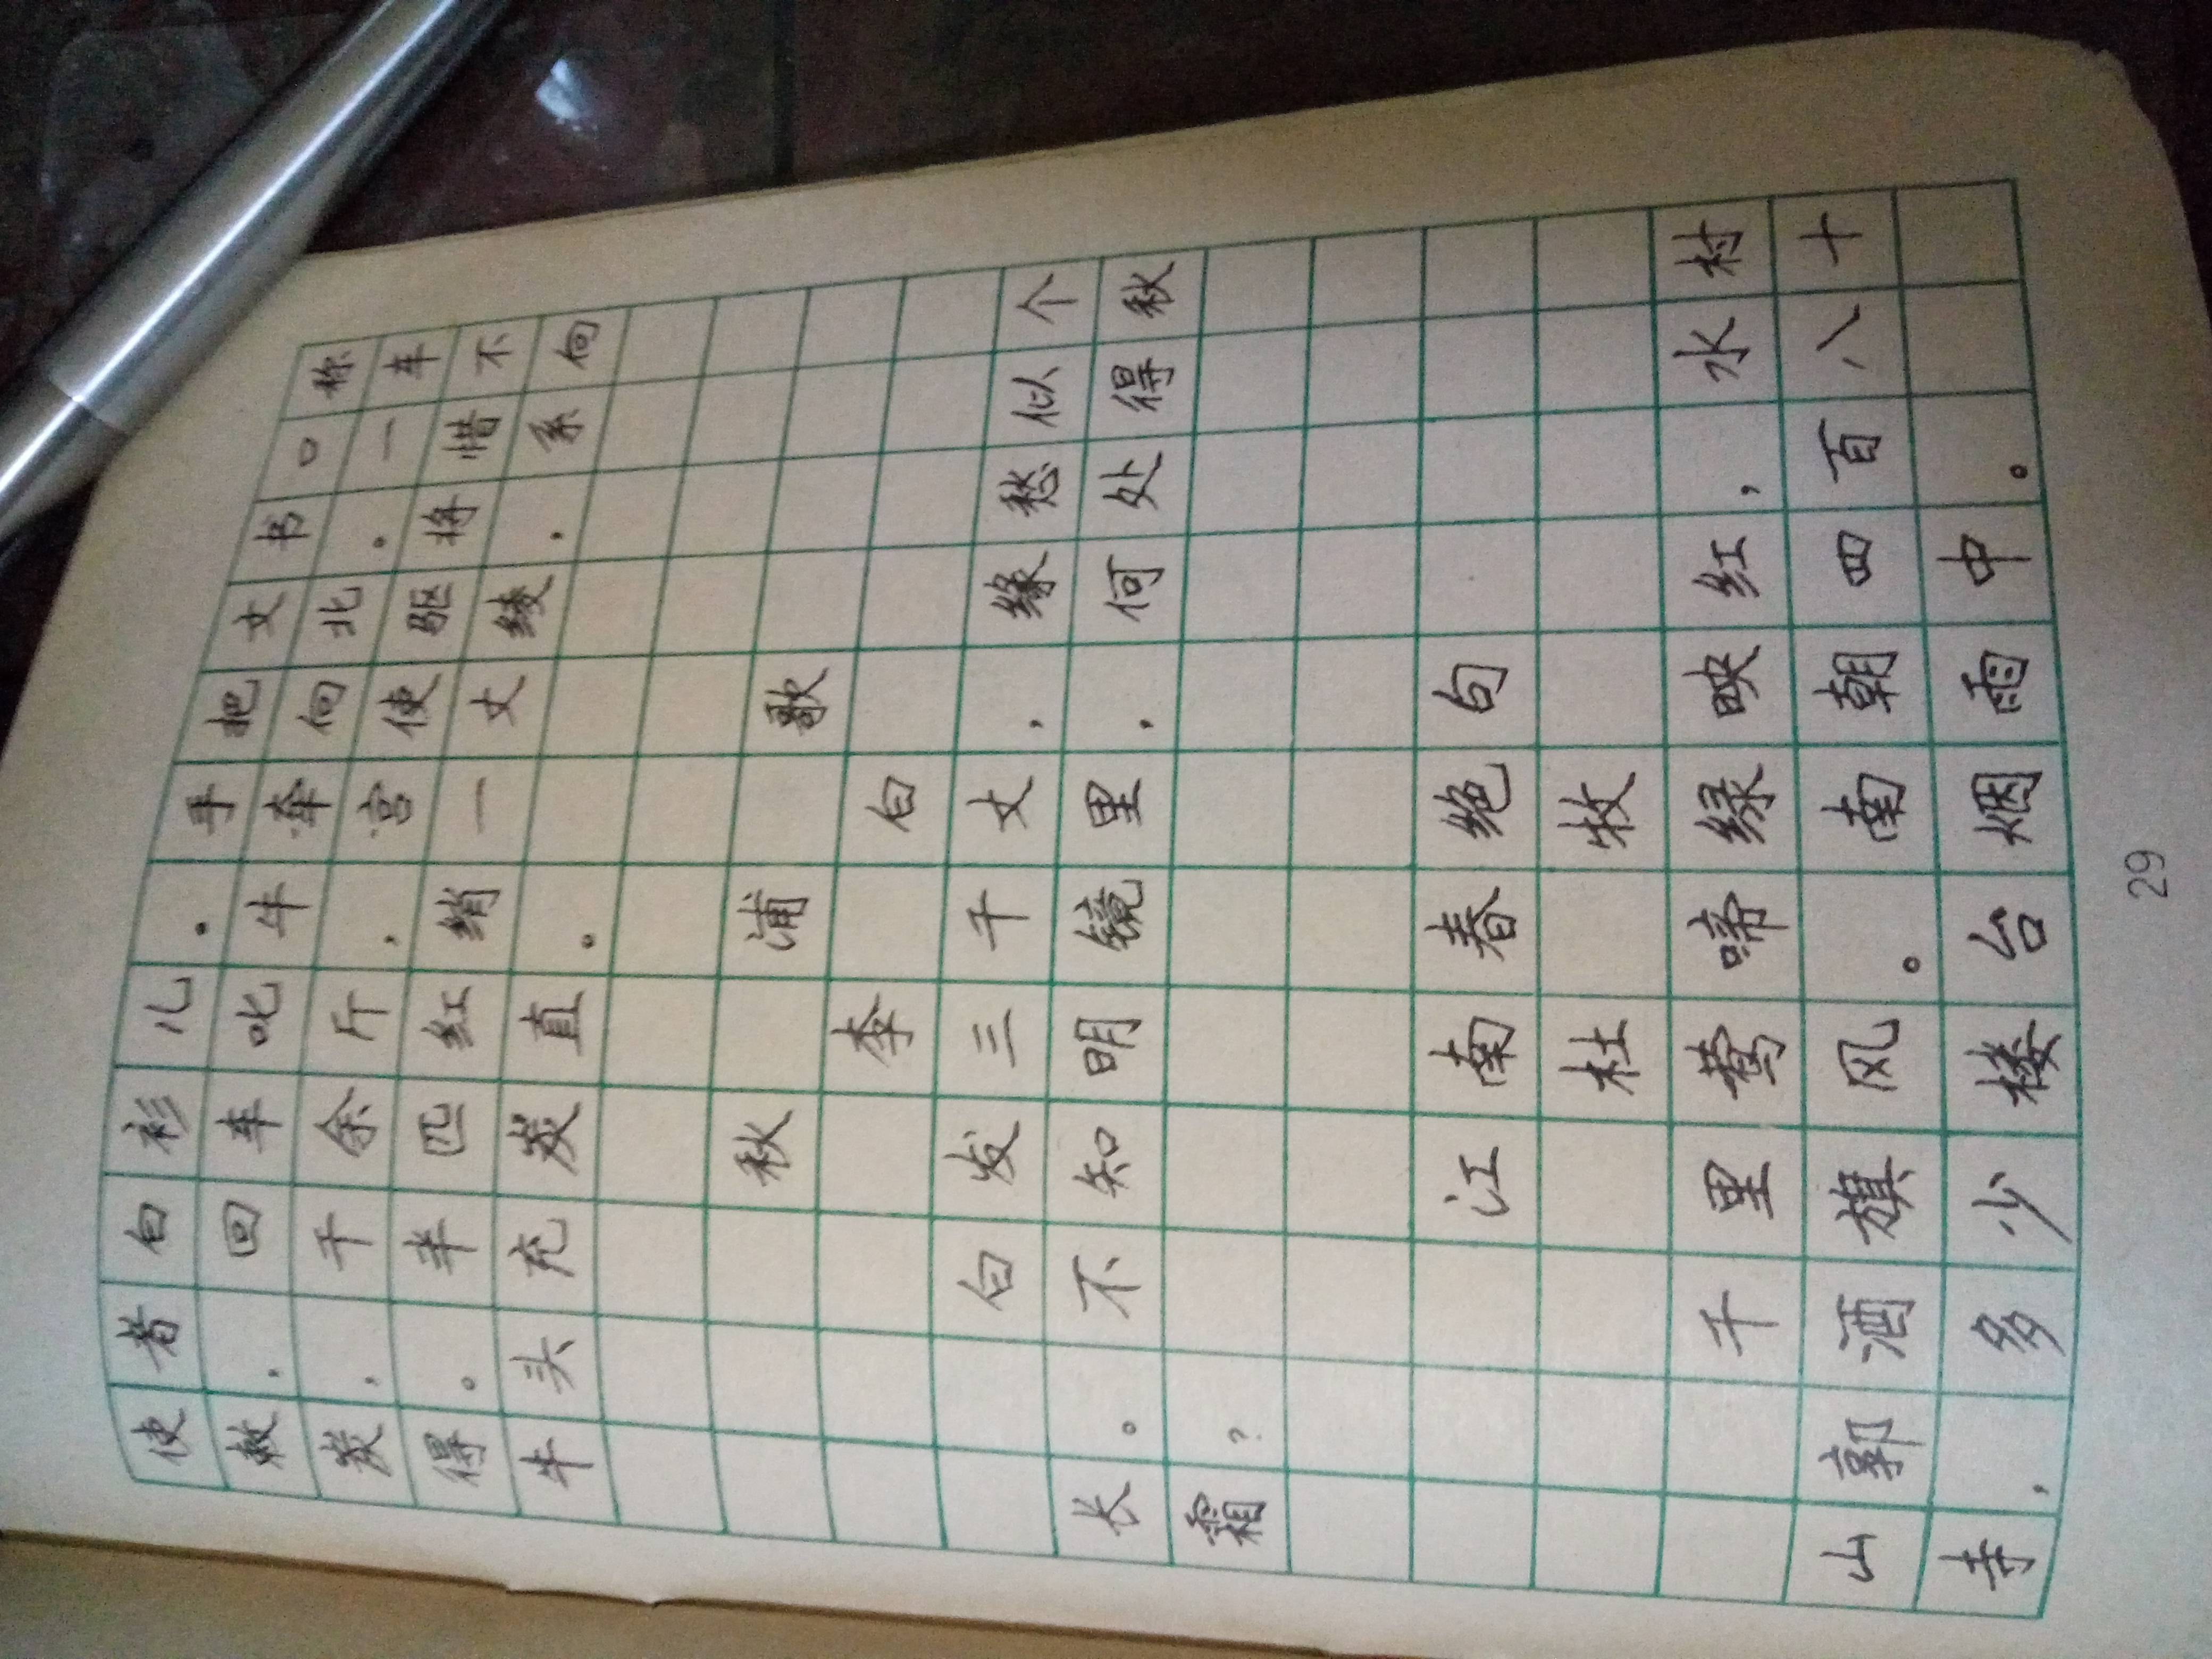 使者白衫儿，手把文书口称
敕，回车叱牛牵向北。一车
炭，千余斤，宫使驱将惜不
得。半匹红绡一丈绫，系向
牛头充炭直。
秋浦歌
李白
白发三千丈，缘愁似个
长。不知明镜里，何处得秋
霜？
江南春绝句
杜牧
千里莺啼绿映红，水村
山郭酒旗风。南朝四百八十
寺，多少楼台烟雨中。
29